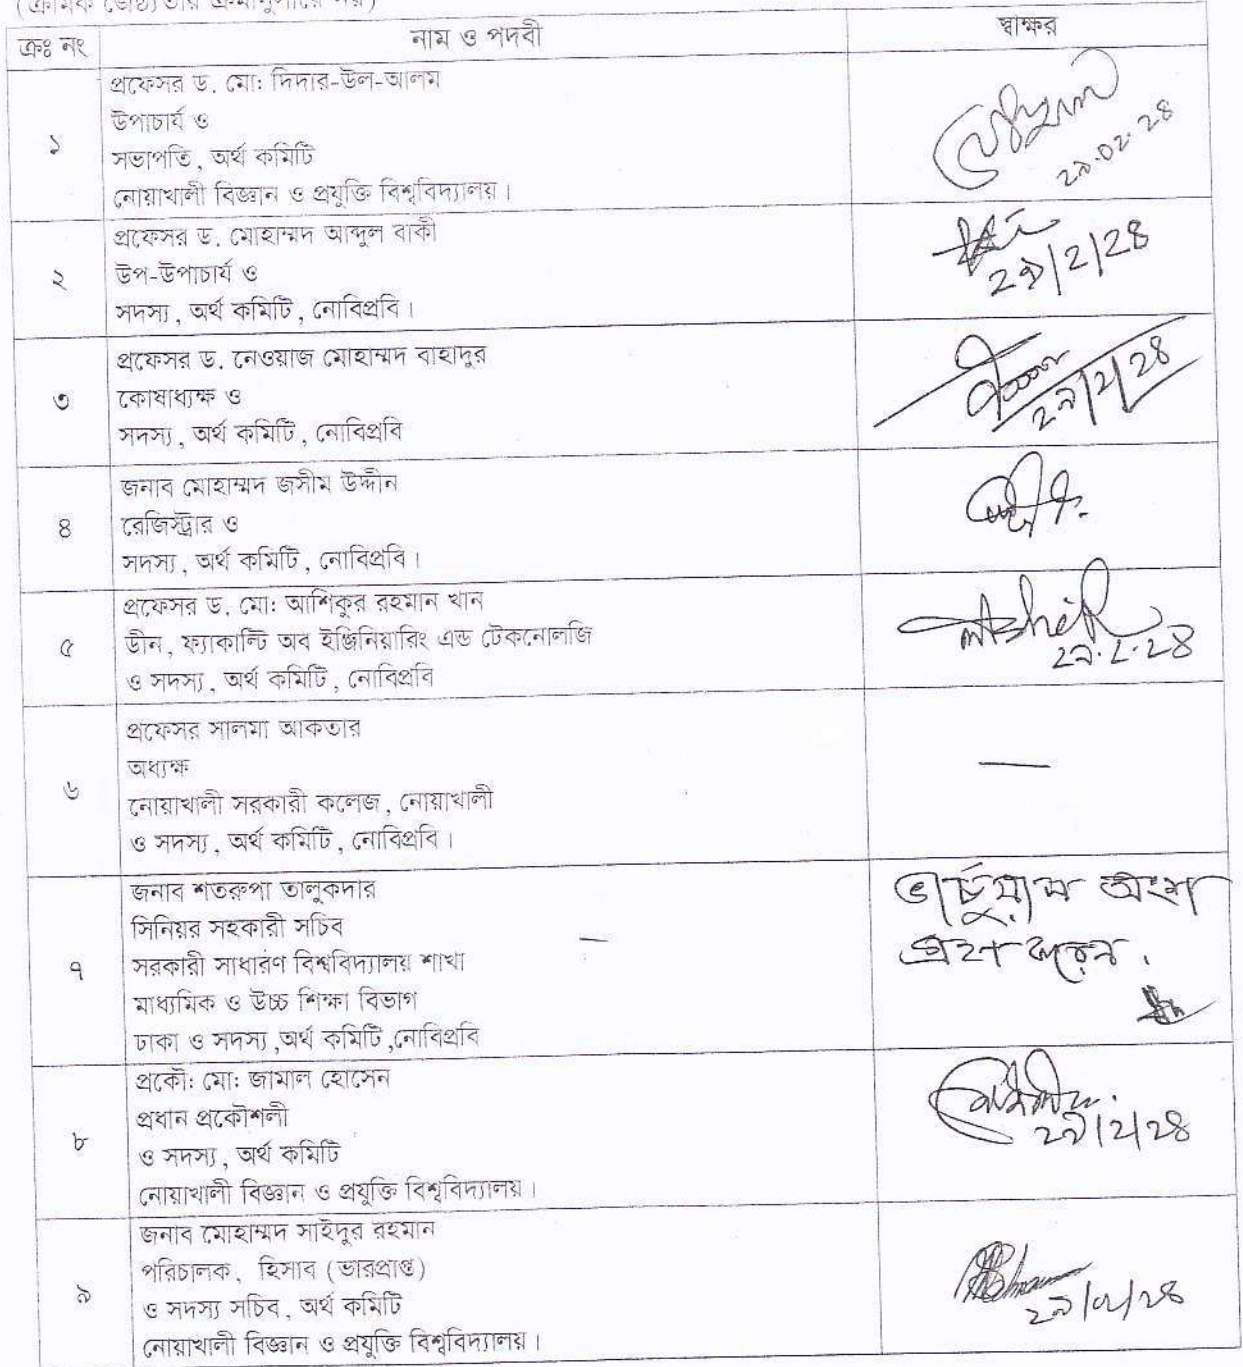 (ক্রমিক জ্যেষ্ঠ্যতার ক্রমানুসারে নয়)
ক্রঃ নং
নাম ও পদবী
স্বাক্ষর
১
প্রফেসর ড. মো: দিদার-উল-আলম
উপাচার্য ও
সভাপতি, অর্থ কমিটি
নোয়াখালী বিজ্ঞান ও প্রযুক্তি বিশ্ববিদ্যালয়।
২৯.০২.২৪
২
প্রফেসর ড. মোহাম্মদ আব্দুল বাকী
উপ-উপাচার্য ও
সদস্য, অর্থ কমিটি, নোবিপ্রবি।
২৯/২/২৪
৩
প্রফেসর ড. নেওয়াজ মোহাম্মদ বাহাদুর
কোষাধ্যক্ষ ও
সদস্য, অর্থ কমিটি, নোবিপ্রবি
২৯/২/২৪
৪
জনাব মোহাম্মদ জসীম উদ্দীন
রেজিস্ট্রার ও
সদস্য, অর্থ কমিটি, নোবিপ্রবি।
৫
প্রফেসর ড. মো: আশিকুর রহমান খান
ডীন, ফ্যাকাল্টি অব ইঞ্জিনিয়ারিং এন্ড টেকনোলজি
ও সদস্য, অর্থ কমিটি, নোবিপ্রবি
২৯.২.২৪
৬
প্রফেসর সালমা আকতার
অধ্যক্ষ
নোয়াখালী সরকারী কলেজ, নোয়াখালী
ও সদস্য, অর্থ কমিটি, নোবিপ্রবি।
—
৭
জনাব শতরুপা তালুকদার
সিনিয়র সহকারী সচিব
সরকারী সাধারণ বিশ্ববিদ্যালয় শাখা
মাধ্যমিক ও উচ্চ শিক্ষা বিভাগ
ঢাকা ও সদস্য ,অর্থ কমিটি ,নোবিপ্রবি
ভার্চুয়াল অংশ
গ্রহণ করেন.
৮
প্রকৌ: মো: জামাল হোসেন
প্রধান প্রকৌশলী
ও সদস্য, অর্থ কমিটি
নোয়াখালী বিজ্ঞান ও প্রযুক্তি বিশ্ববিদ্যালয়।
২৯/২/২৪
৯
জনাব মোহাম্মদ সাইদুর রহমান
পরিচালক, হিসাব (ভারপ্রাপ্ত)
ও সদস্য সচিব, অর্থ কমিটি
নোয়াখালী বিজ্ঞান ও প্রযুক্তি বিশ্ববিদ্যালয়।
২৯/০২/২৪